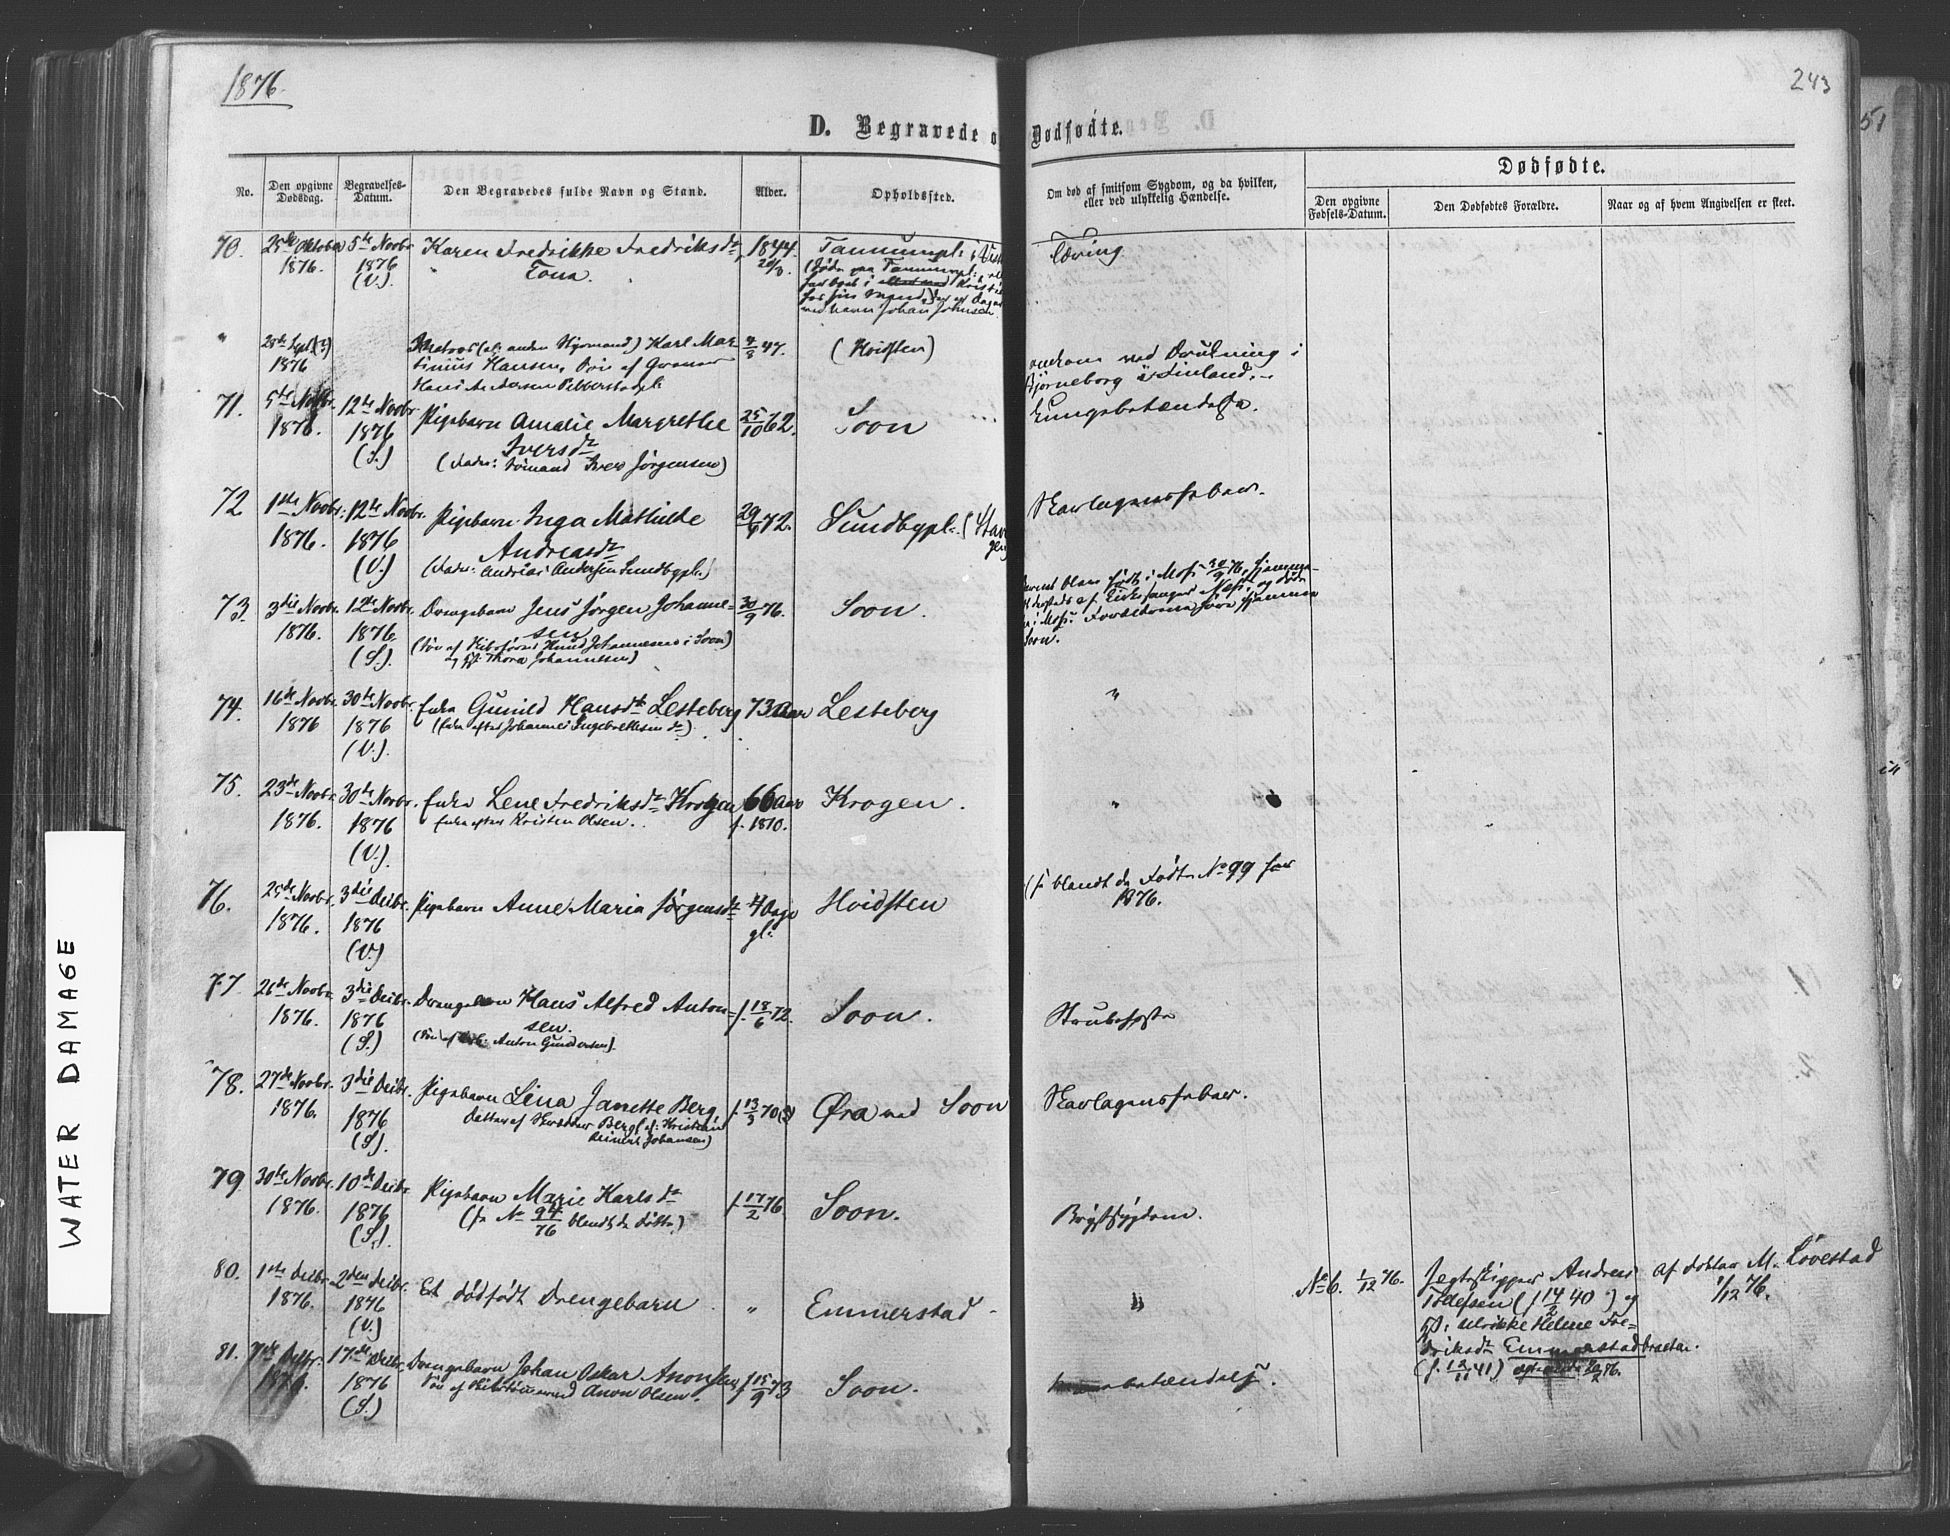 1876.
243
51
D. Begravede o
Dødfødte.
No.
Den opgivne Dødsdag.
Begravelses-Datum.
Den Begravedes fulde Navn og Stand.
Alder.
Opholdssted.
Om død af smitsom Sygdom, og da hvilken,
eller ved ulykkelig Hændelse.
Dødfødte.
Den opgivne Fødsels-Datum.
Den Dødfødtes Forældre.
Naar og af hvem Angivelsen er skeet.
70. 25de Oktober 1876. 5te Novbr 1876 (V.) Karen Fredrikke Fredriksdr Tona. 1844 20/3.
ved navn Johan Johnsen
Tæring
" 28de Sept. (?) 1876
Karl Mar
tinius Hansen, Søn af
Hans Andersen
47. (Hvidsten)
omkom ved Drukning i
Bjørneborg i Finland.
71. 5te Novbr. 1876. 12te Novbr 1876 (S.) Pigebarn Amalie Margrethe
Iversdr
(Fader: Sømand Iver Jørgensen)
25/10 62. Soon
Lungebetændelse.
72 1ste Novbr. 1876. 12te Novbr. 1876 (V.) Pigebarn Inga Mathilde
Andreasdr
(Fader: Andreas Andersen Sundbypl.)
29/9 72. Sundbypl.
Skarlagensfeber.
73. 3die Novbr. 1876. 12te Novbr. 1876 (S.) Drengebarn Jens Jørgen Johanne=
sen
(Søn af Skibsfører Knud Johannesen i Soon)
og Thora Johannesen)
30/9 76. Soon.
blan født i Moss 30/9 76, hjemme-
af Kirkesanger Næss, og døde
i Moss. Forældrene
Soon.
74. 16de Novbr. 1876 30te Novbr. 1876 (V.) Enke Gunild Hansdr Lesteberg
(Enke efter Johannes Ingebrethsen)
73 Aar Lesteberg
"
75. 23de Novbr. 1876. 30te Novbr. 1876 (V.) Enke Lene Fredriksdr Krogen
Enke efter Kristen Olsen.
66 Aar f. 1810. Krogen.
"
76. 25de Novbr. 1876. 3die Decbr. 1876 (V.) Pigebarn Anne Maria Jørgensdr 4 Dage gl. Hvidsten
blandt de Fødte No 99 for
1876.
77. 26de Novbr. 1876. 3die Decbr. 1876 (S.) Drengebarn Hans Alfred Anton=
sen.
(Søn af Anton Gundersen).
f. 18/6 72. Soon.
Strubehoste
78. 27de Novbr. 1876. 3die Decbr. 1876 (S.) Pigebarn Lina Janette Berg,
Datter af Berg
Johansen)
f. 13/3 70 Øra ved Soon
Skarlagensfeber.
79. 30te Novbr. 1876. 10de Decbr 1876 (S.) Pigebarn Marie Karlsdr
(fr No 94/76 blandt de fødte)
f. 17/2 76. Soon.
Brystsygdom.
80. 1ste Decbr. 1876. 2den Decbr. 1876 (V.) Et dødfødt Drengebarn " Emmerstad
"
No 6. 1/12 76. Jegteskipper Andreas
Tollefsen (f 14/2 40) og
Ulrikke Helene Fre=
driksdr Emmerstad
(f. 12/11 41)
af Doktor M. Løvestad
1/12 76.
81. 7de Decbr. 1876. 17de Decbr. 1876 (S.) Drengebarn Johan Oskar Anonsen
Søn af Anon Olsen.
f. 15/9 73 Soon.
betændelse.
WATER DAMAGE